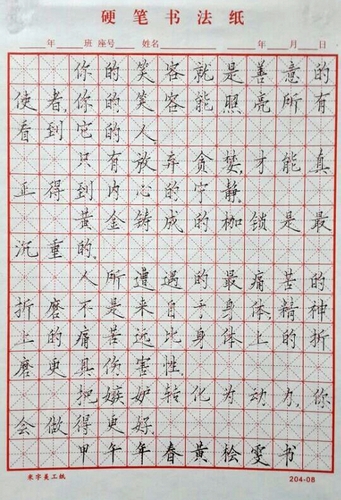 硬笔书法纸
年 班 座号 姓名 年 月 日
你的笑容就是善意的
使者,你的笑容能照亮所有
看到它的人.
只有放弃贪婪,才能真
正得到内心的宁静.
黄金铸成的枷锁是最
沉重的.
人所遭遇的最痛苦的
折磨不是来自于身体.精神
上的痛苦远比身体上的折
磨更具伤害性.
把嫉妒转化为动力,你
会做得更好.
甲午年春黄桧雯书
米字美工纸 204-08